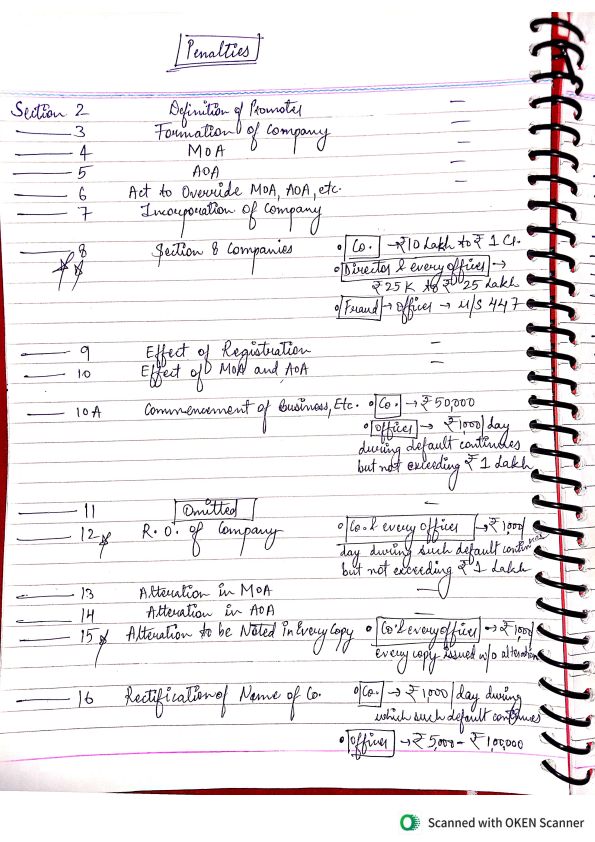 Penalties
Section 2 Definition of Promoter –
3 Formation of Company –
4 MOA –
5 AOA –
6 Act to Override MOA, AOA, etc.
7 Incorporation of Company
8 Section 8 Companies • Co. → ₹10 Lakh to ₹ 1 Cr.
• Director & every officer →
₹ 25 K to ₹ 25 Lakh
• Fraud → Officer → u/s 447
9 Effect of Registration –
10 Effect of MOA and AOA –
10A Commencement of Business, Etc. • Co. → ₹ 50,000
• Officer → ₹1,000/day
during default continues
but not exceeding ₹ 1 Lakh
11 Omitted –
12 R.O. of Company • Co. & every officer → ₹1,000/
day during such default continues
but not exceeding ₹ 1 Lakh
13 Alteration in MOA –
14 Alteration in AOA –
15 Alteration to be Noted in Every Copy • Co. & every officer → ₹1,000/
every copy issued w/o alteration
16 Rectification of Name of Co. • Co. → ₹1,000/day during
which such default continues
• Officer → ₹5,000 – ₹1,00,000
Scanned with OKEN Scanner